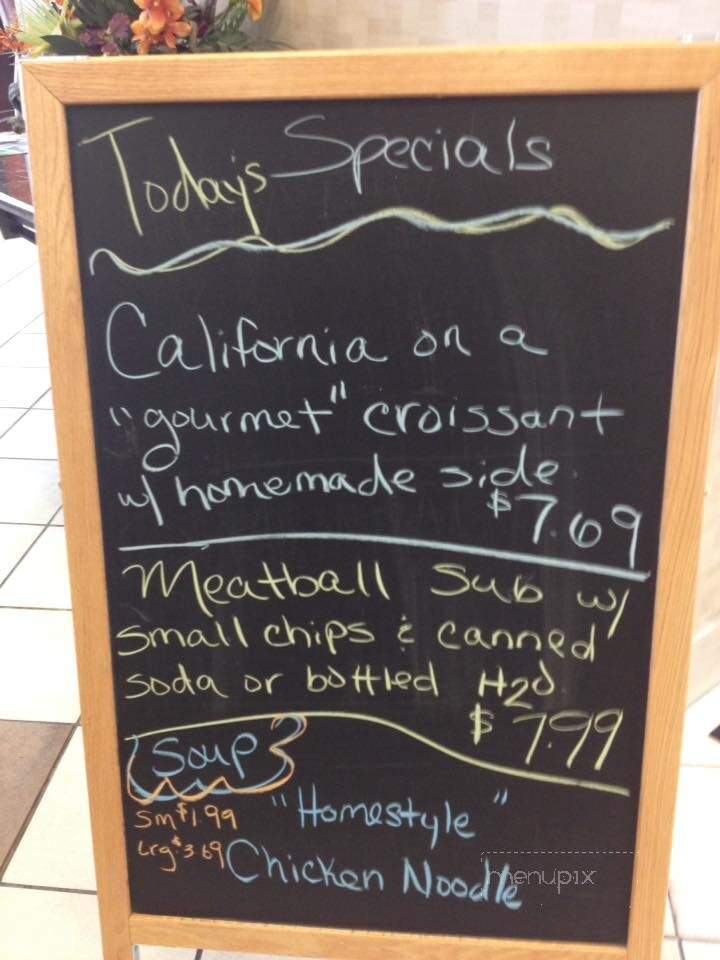 Today's Specials
California on a
"gourmet" croissant
w/ homemade side
$7.69
Meatball Sub w/
small chips & canned
soda or bottled H2O
$7.99
Soup
Sm $1.99
Lrg $3.69
"Homestyle"
Chicken Noodle
menupix